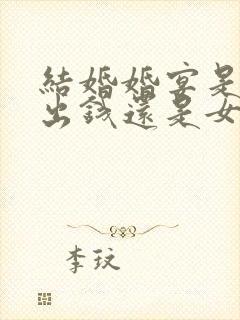 結婚婚宴是
出錢還是女
李玟